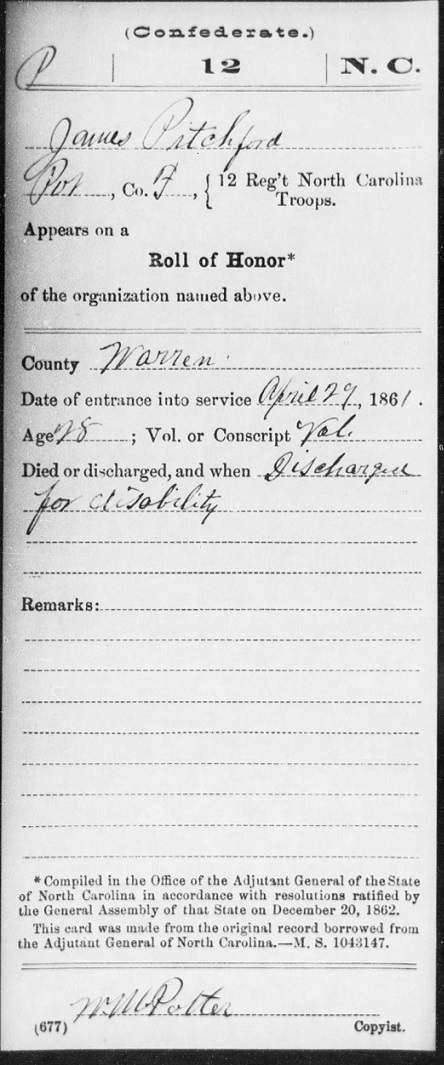 (Confederate.)
P | 12 | N. C.
James Pitchford
Pvt, Co. F, { 12 Reg't North Carolina Troops.
Appears on a
Roll of Honor*
of the organization named above.
County Warren
Date of entrance into service April 29, 1861.
Age 28; Vol. or Conscript Vol.
Died or discharged, and when Discharged
for disability
Remarks:
*Compiled in the Office of the Adjutant General of the State
of North Carolina in accordance with resolutions ratified by
the General Assembly of that State on December 20, 1862.
This card was made from the original record borrowed from
the Adjutant General of North Carolina.—M. S. 1043147.
W. M. Potter
(677) Copyist.